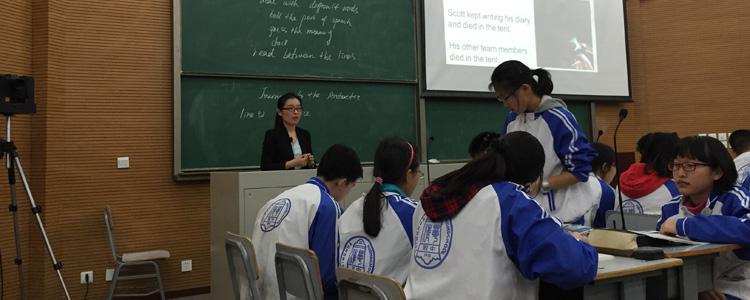 deal with difficult words
tell the part of speech
guess the meaning
check
read between the lines
Journey to the Antarctic
Scott kept writing his diary
and died in the tent.
His other team members
died in the tent.